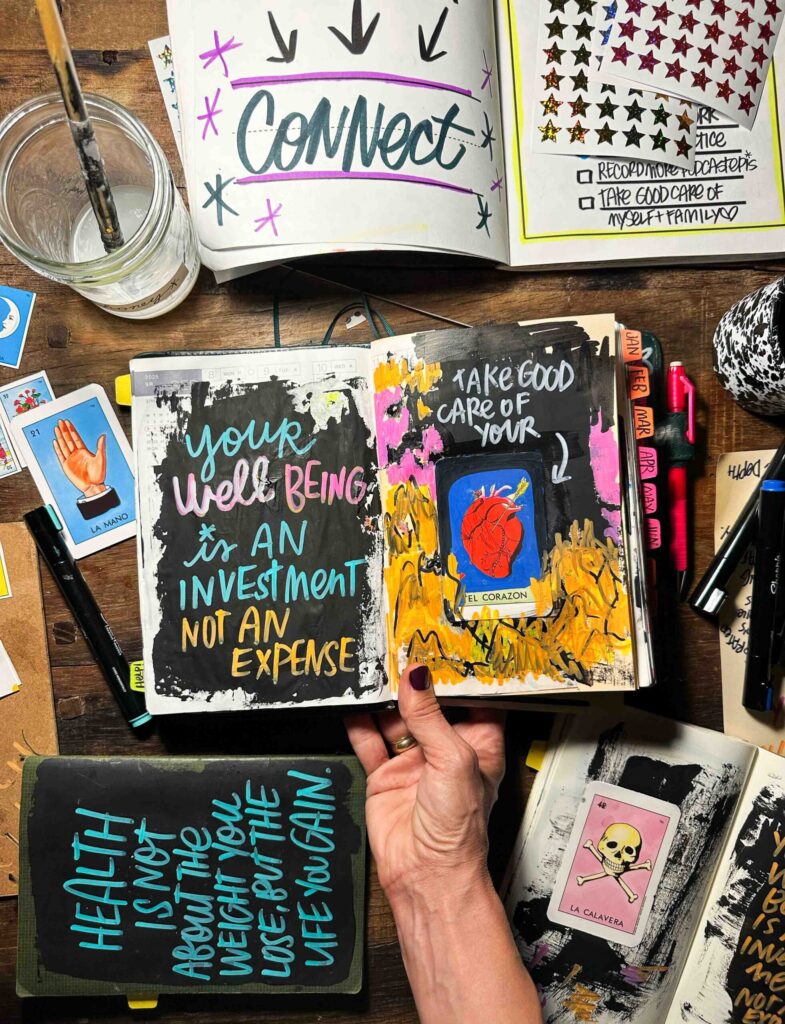 CONNect
RECORD MORE PODCAST EPIS
TAKE GOOD CARE OF
MYSELF + FAMILY
2025
8 MON
TUE
10 WED
YOUR
Well BEING
is AN
INVESTMENT
NOT AN
EXPENSE
TAKE GOOD
CARE OF
YOUR
EL CORAZON
JAN
FEB
MAR
APR
MAY
JUN
21
LA MANO
Help!
HEALTH
IS NOT
ABOUT THE
WEIGHT YOU
LOSE, BUT THE
LIFE YOU GAIN.
LA CALAVERA
DEPTH
Sharpie